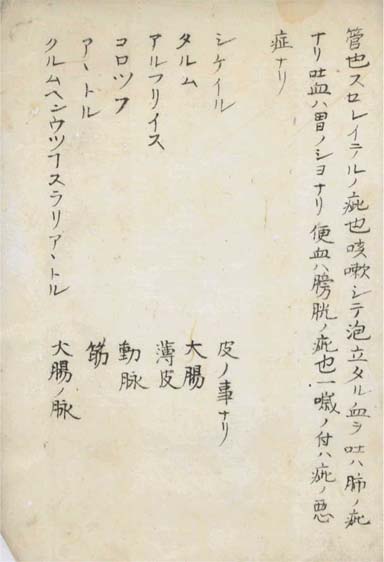 管也スロレイテルノ疵也咳嗽シテ泡立タル血ヲ吐ハ肺ノ疵
ナリ吐血ハ胃ノシヨナリ便血ハ膀胱ノ疵也一嘔ノ付ハ疵ノ悪
症ナリ
シケイル 皮ノ事ナリ
タルム 大腸
アルフリイス 薄皮
コロツフ 動脉
アヽトル 筋
クルムヘンウツースラリアヽトル 大腸ノ脉